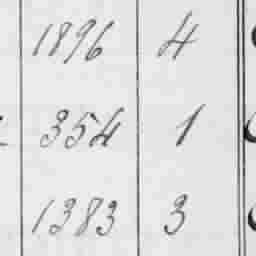 1896 4
354 1
1383 3